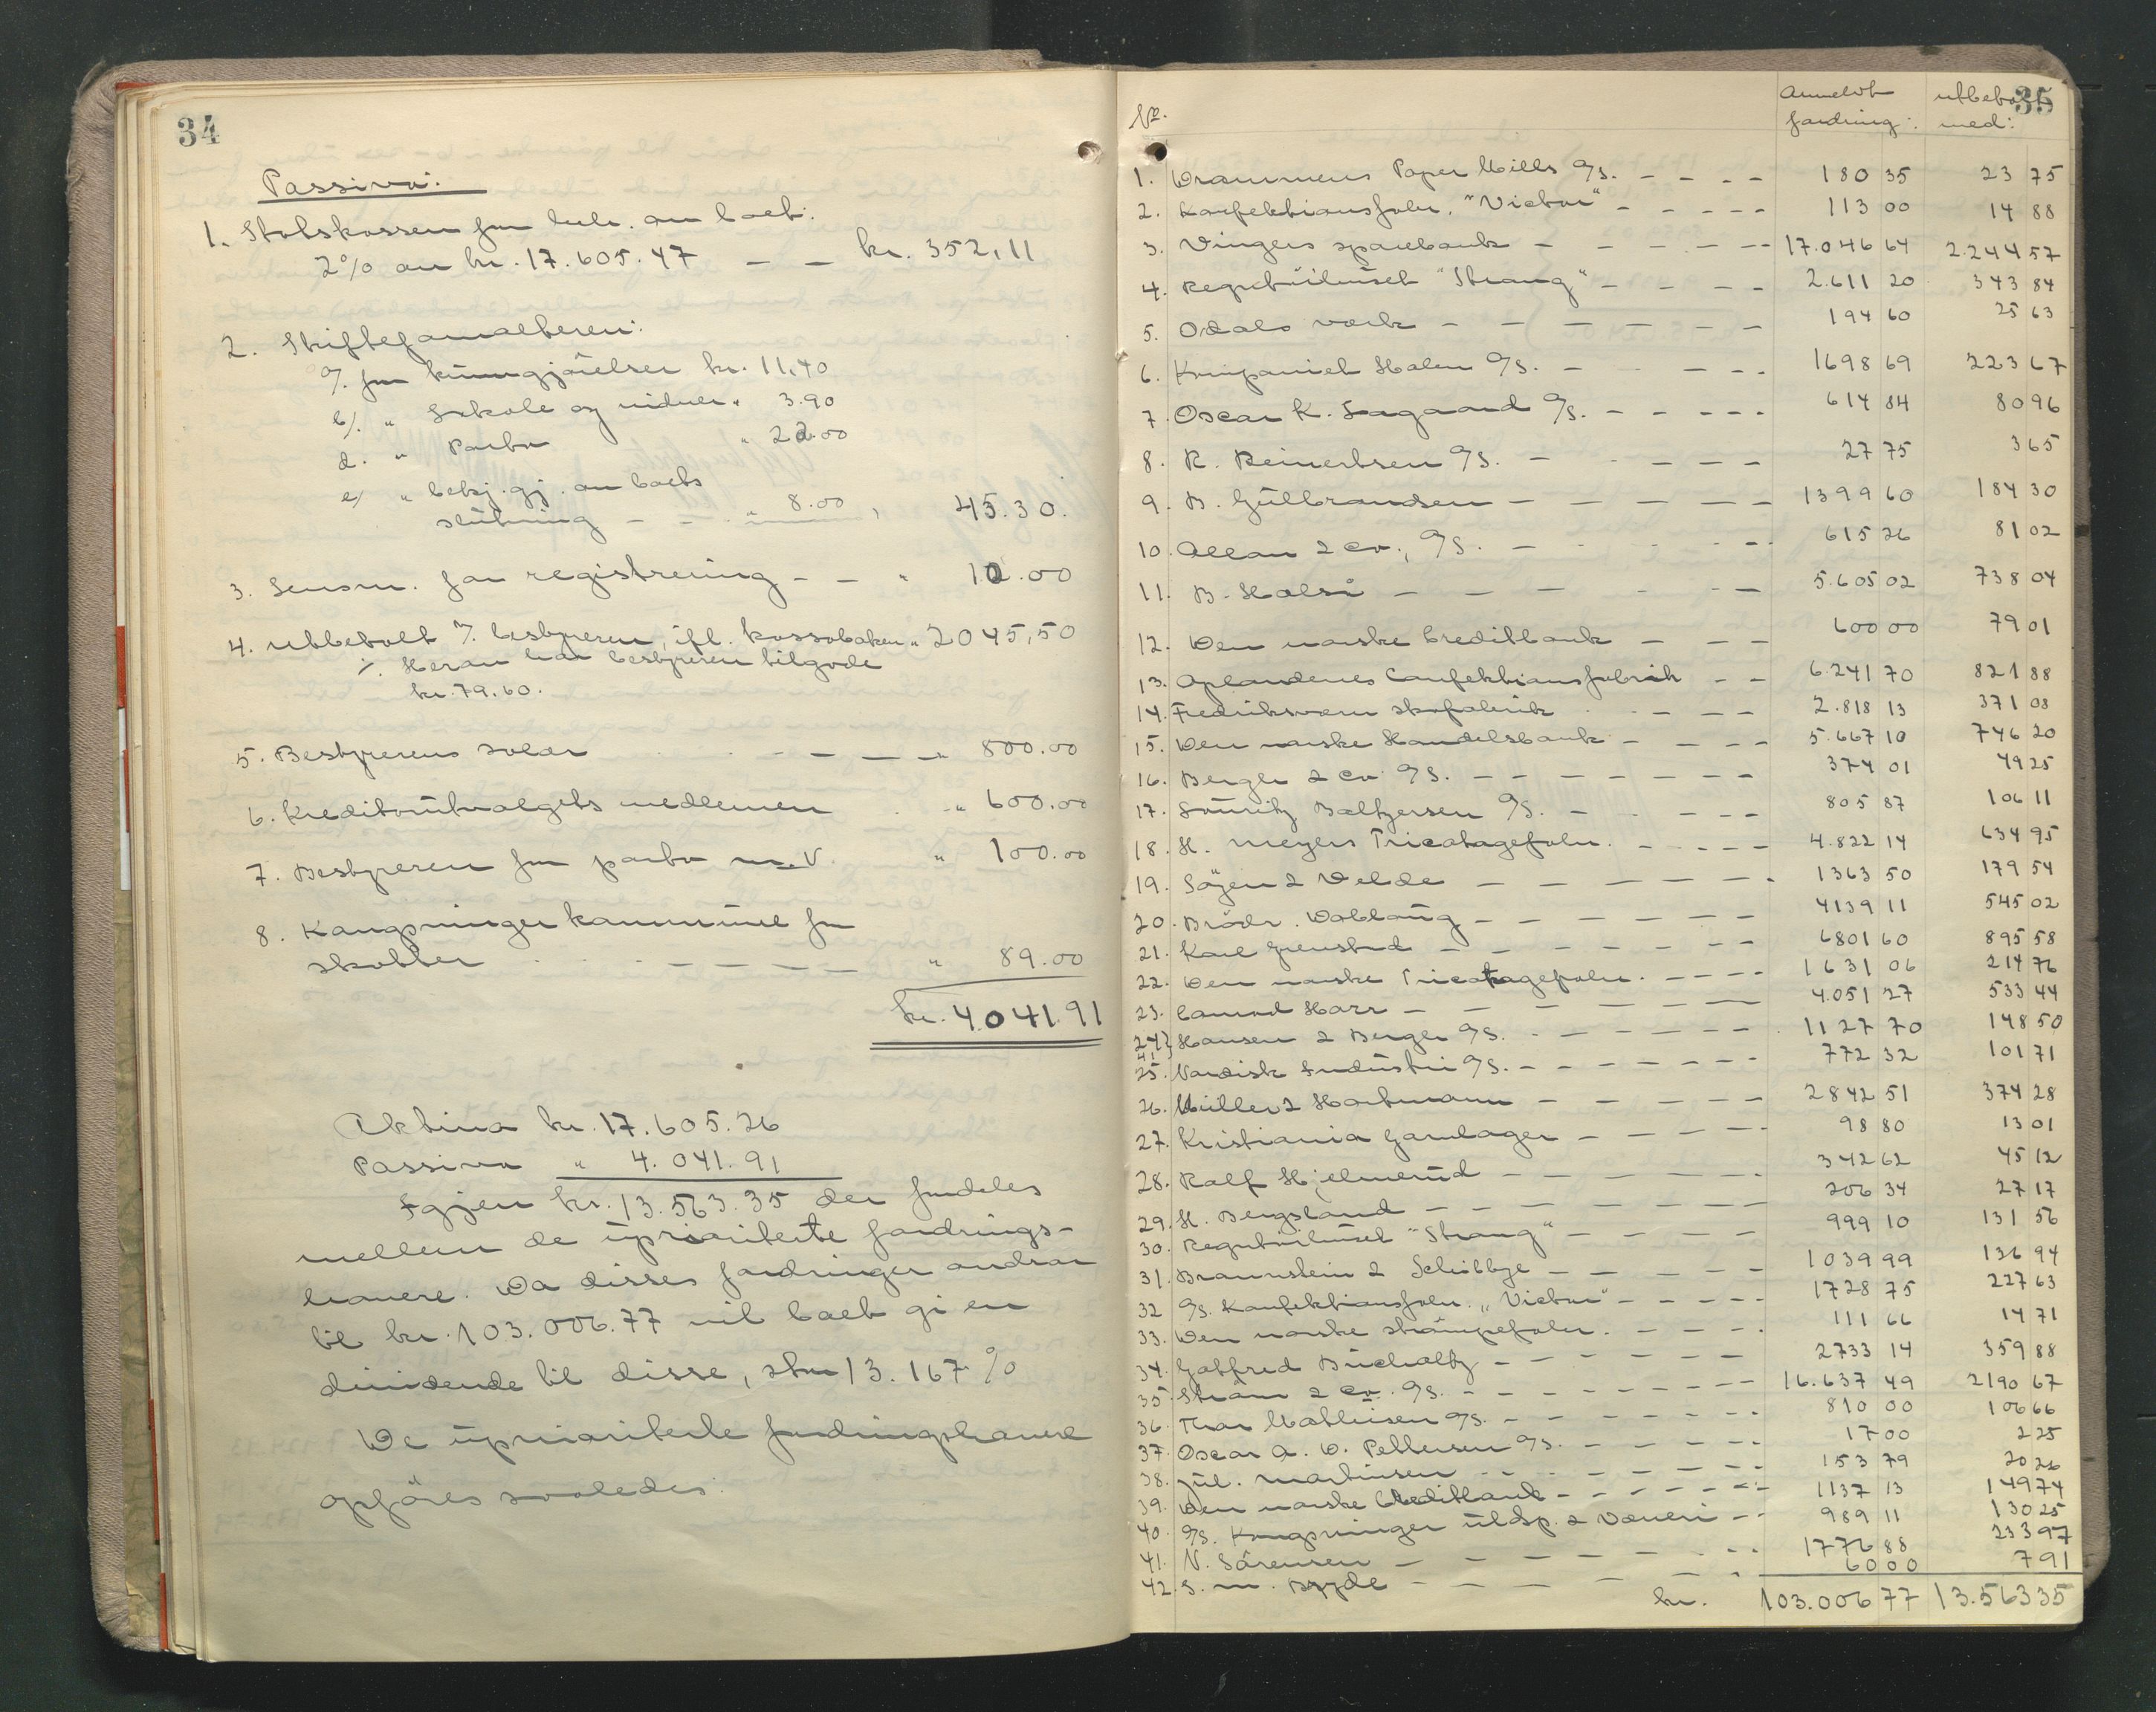 34
Passiva:
1. Statskassen for beh. av boet:
2% av kr. 17.605.47 — — kr. 352,11
2. Skifteforvalteren:
a/. for kunngjörelser kr. 11,40
b/. " Lskole og vidner " 3.90
d. " Porto " 22.00
e/ " bekj.gj. av boets
slutning — — " 8.00 " 45.30.
3. Lensm. for registrering — — " 12.00
4. Utbetalt af bestyreren, ifl. kassaboken " 2045,50
%. Herav har bestyreren tilgode
kr. 79.60.
5. Bestyrerens salær — — — " 800.00
6. Kreditorutvalgets medlemmer " 600.00
7. Bestyreren for porto m.v. " 100.00
8. Kongsvinger kommune for
skatter — — — — — " 89.00
kr. 4041.91
Aktiva kr. 17.605.26
Passiva " 4.041.91
Igjen kr. 13.563.35 der fordeles
mellem de uprioriterte fordrings-
havere. Da disses fordringer andrar
til kr. 103.006.77 vil boet gi en
dividende til disse, stor 13.167 %
De uprioriterte fordringshavere
opföres saaledes:
35
No. Anmeldt fordring: utbetalt med:
1. Drammens Paper Mills A/S. — — — — 180 35 23 75
2. Konfektionsfabr. "Victor" — — — — 113 00 14 88
3. Vingers sparebank — — — — — 17.046 64 2.244 57
4. Reguteilhuset "Strang" — — — — 2.611 20 343 84
5. Odals verk — — — — — — 194 60 25 63
6. Kompaniet Halen A/S. — — — — 1698 69 223 67
7. Oscar K. Laagaard A/S. — — — — 614 84 80 96
8. R. Reinertsen A/S. — — — — 27 75 3 65
9. B. Gulbrandsen — — — — — 1399 60 184 30
10. Allan & Co., A/S. — — — 615 26 81 02
11. B. Halsi — — — — — 5.605 02 738 04
12. Den norske Creditbank — — — 600 00 79 01
13. Oplandenes Confektionsfabrik — — 6.241 70 821 88
14. Fredriksværn skofabrik — — — 2.818 13 371 08
15. Den norske Handelsbank — — — — 5.667 10 746 20
16. Berger & Co A/S. — — — — — — — 374 01 49 25
17. Lauritz Baltzersen A/S. — — — — 805 87 106 11
18. H. Meyers Tricotagefabr. — — — — — 4.822 14 634 95
19. Löjen & Velde — — — — — — 1363 50 179 54
20. Brödr. Dobloug — — — — — — 4139 11 545 02
21. Karl Grenstad — — — — — — 6801 60 895 58
22. Den norske Tricotagefabr. — — — — 1631 06 214 76
23. Conrad Harr — — — — — — 4.051 27 533 44
24} 41} Hansen & Berger A/S. — — — — — — 1127 70 148 50
25. Nordisk Industri A/S. — — — — — — 772 32 101 71
26. Müller & Hartmann — — — — — 2842 51 374 28
27. Kristiania Garnlager — — — — — 98 80 13 01
28. Ralf Hjelmerud — — — — — — 342 62 45 12
29. H. Bergsland — — — — — — — 206 34 27 17
30. Reguteilhuset "Strang" — — — — 999 10 131 56
31. Braunstein & Schibbye — — — — — 1039 99 136 94
32 A/S. Konfektionsfabr. "Victor" — — — — — 1728 75 227 63
33. Den norske strömpefabr. — — — — 111 66 14 71
34. Gotfred Bucholtz — — — — — — 2733 14 359 88
35. Ström & Co. A/S. — — — — — — — 16.637 49 2190 67
36. Thor Mathisen A/S. — — — — — — 810 00 106 66
37. Oscar A. D. Pettersen A/S. — — — — — 17 00 2 25
38. Jul. Martinsen — — — — — — 153 79 20 26
39. Den norske Creditbank — — — — — — 1137 13 149 74
40. A/S. Kongsvinger uldsp. & Væveri — — 989 11 130 25
41. N. Sörensen — — — — — — 1776 88 233 97
42. S. M. Bryde — — — — — — 60 00 7 91
kr. 103.006 77 13.563 35